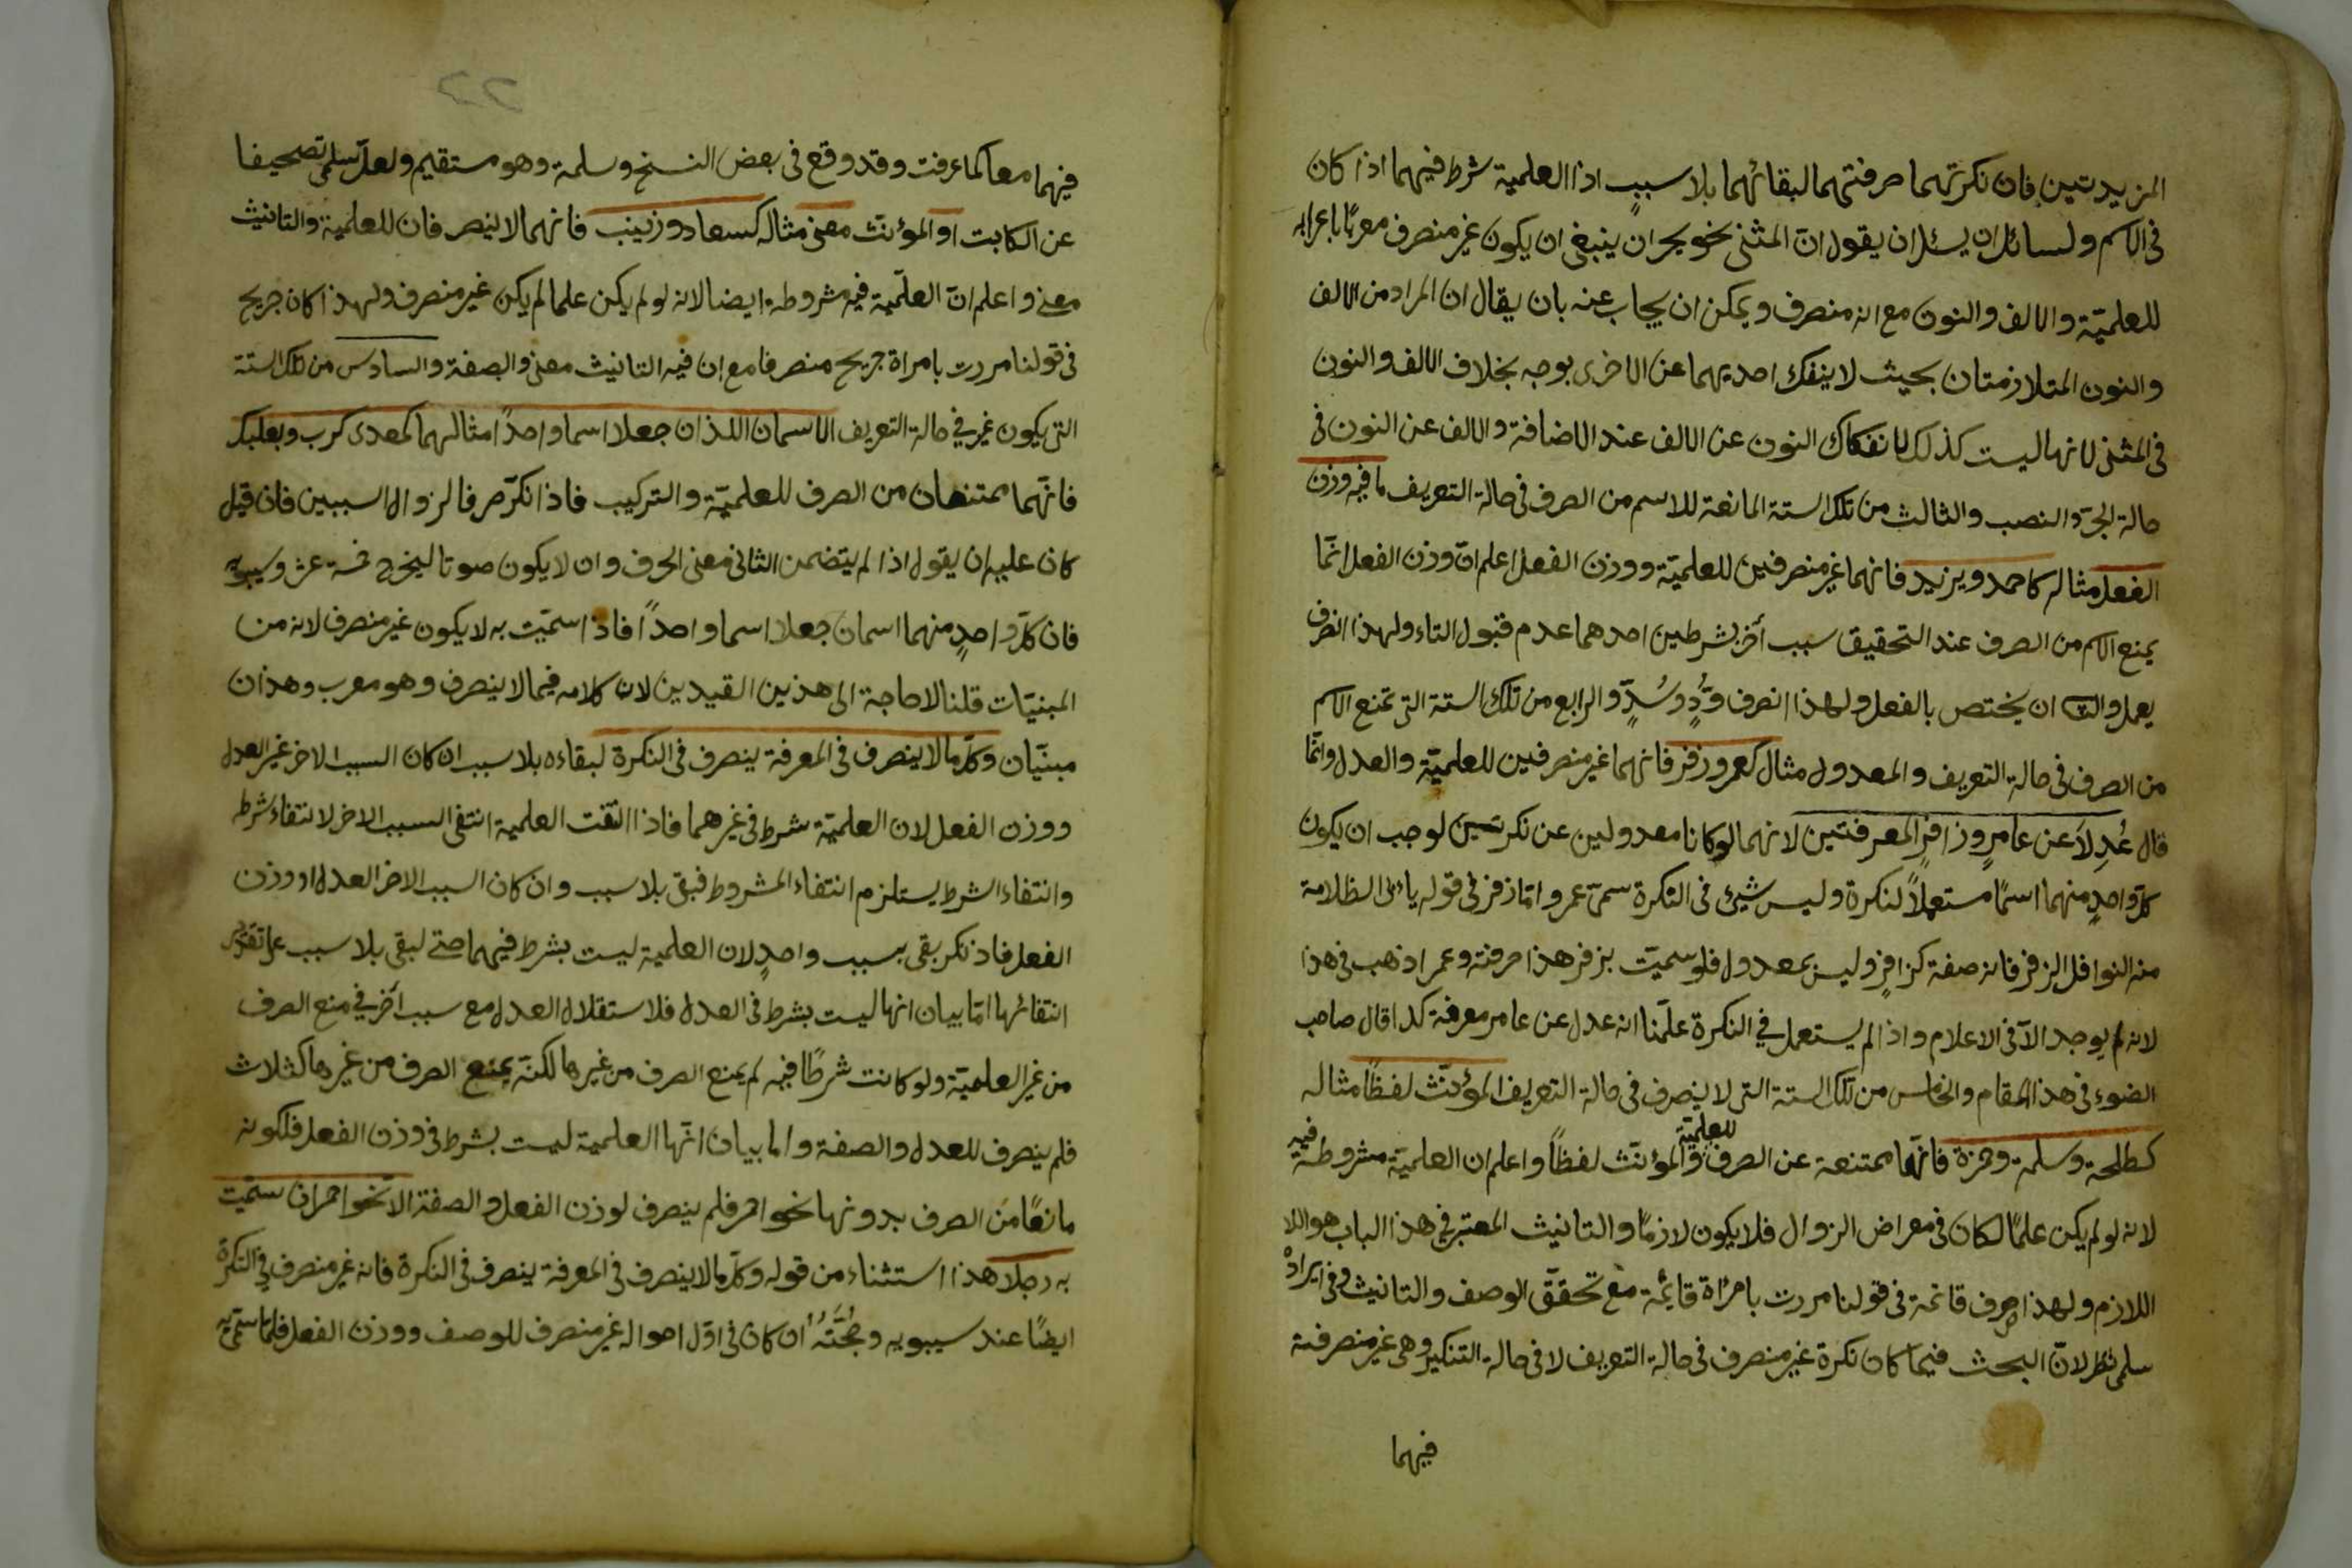 المزيدتين فان نكرتهما صرفتهما لبقائهما بلا سبب اذا العلمية شرط فيهما اذا كان
فى الاسم ولسائل ان يسئل ان يقول انّ المثنى نحو بحران ينبغى ان يكون غير منصرف معربًا باعرابه
للعلميّة والالف والنون مع انه منصرف ويمكن ان يجاب عنه بان يقال ان المراد من الالف
والنون المتلازمتان بحيث لا ينفك احديهما عن الاخرى بوجه بخلاف الالف والنون
فى المثنى لانها ليست كذلك لانفكاك النون عن الالف عند الاضافة والالف عن النون فى
حالة الجرّ والنصب والثالث من تلك الستة المانعة للاسم من الصرف فى حالة التعريف ما فيه وزن
الفعل مثاله كاحمد ويزيد فانهما غير منصرفين للعلميّة ووزن الفعل اعلم انّ وزن الفعل انّما
يمنع الاسم من الصرف عند التحقيق سبب آخر بشرطين احدهما عدم قبول التاء ولهذا انصرف
يعمل والثانى ان يختص بالفعل ولهذا انصرف وُدٍّ وسُدٍّ والرابع من تلك الستة التى تمنع الاسم
من الصرف فى حالة التعريف والمعدول مثال كعمر وزفر فانهما غير منصرفين للعلميّة والعدل وانّما
قال عُدِلَا عن عامرٍ وزافرٍ المعرفتين لانهما لو كانا معدولين عن نكرتين لوجب ان يكون
كلّ واحدٍ منهما اسمًا مستعملًا لنكرة وليس شيئ فى النكرة سمىّ عمر وامّا زفر فى قوله يابى الظلامة
منه النوافل الزفر فانه صفة كزافرٍ وليس بمعدول فلو سميّت بزفر هذا صرفته وعمر اذهب فى هذا
لانه لم يوجد الّا فى الاعلام واذا لم يستعمل فى النكرة علمنا انه عدل عن عامر معرفة كذا قال صاحب
الضوء فى هذا المقام والخامس من تلك الستة التى لا ينصرف فى حالة التعريف المؤنّث لفظًا مثاله
كطلحة وسلمة وحمزة فانّها ممتنعة عن الصرف للعلميّة والمؤنّث لفظًا واعلم ان العلميّة مشروطة فيه
لانه لو لم يكن علمًا لكان فى معراض الزوال فلا يكون لازمًا والتانيث المعتبر فى هذا الباب هو اللا
اللازم ولهذا صرف قائمة فى قولنا مررت بامراة قائمة مع تحقّق الوصف والتانيث وفى ايراد
سلمى نظر لانّ البحث فيما كان نكرة غير منصرف فى حالة التعريف لا فى حالة التنكير وهى غير منصرفة
فيهما
فيهما معا كما عرفت وقد وقع فى بعض النسخ وسلمة وهو مستقيم ولعلّ سلمى تصحيفا
عن الكاتب او المؤنّث معنى مثاله كسعاد وزينب فانهما لا ينصرفان للعلميّة والتانيث
معنى واعلم انّ العلّميّة فيه مشروطة ايضا لانه لو لم يكن علما لم يكن غير منصرف ولهذا كان جريح
فى قولنا مررت بامراة جريح منصرفا مع ان فيه التانيث معنى والصفة والسادس من تلك الستة
التى يكون غير فى حالة التعريف الاسمان اللذان جعلا اسما واحدًا مثالهما كمعدى كرب وبعلبك
فانّهما ممتنعان من الصرف للعلميّة والتركيب فاذا نكرّ صرفا لزوال السببين فان قيل
كان عليه ان يقول اذا لم يتضمن الثانى معنى الحرف وان لا يكون صوتا ليخرج خمسة عشر وسيبويه
فان كلّ واحدٍ منهما اسمان جعلا اسما واحدًا فاذا سميّت به لا يكون غير منصرف لانه من
المبنيّات قلنا لا حاجة الى هذين القيدين لان كلامه فيما لا ينصرف وهو معرب وهذان
مبنيّان وكلّ ما لا ينصرف فى المعرفة ينصرف فى النكرة لبقاءه بلا سبب ان كان السبب الاخر غير العدل
ووزن الفعل لان العلميّة شرط فى غيرهما فاذا انتفت العلمية انتفى السبب الاخر لانتفاء شرطه
وانتفاء الشرط يستلزم انتفاء المشروط فبقى بلا سبب وان كان السبب الاخر العدل او وزن
الفعل فاذ نكر بقى بسبب واحدٍ لان العلمية ليست بشرط فيهما حتى لبقى بلا سبب على تقدير
انتفائها امّا بيان انها ليست بشرط فى العدل فلاستقلال العدل مع سبب آخر فى منع الصرف
من غير العلميّة ولو كانت شرطًا فيه لم يمنع الصرف من غيرها لكنّه يمنع الصرف من غيرها كثلاث
فلم ينصرف للعدل والصفة واما بيان انّها العلمية ليست بشرط فى وزن الفعل فلكونه
مانعًا من الصرف بدونها نحو احمر فلم ينصرف لوزن الفعل والصفة الا نحو احمر ان سمّيت
به رجلا هذا استثناء من قوله وكلّ ما لا ينصرف فى المعرفة ينصرف فى النكرة فانه غير منصرف فى النكرة
ايضًا عند سيبويه وحُجَّتُهُ ان كان فى اوّل احواله غير منصرف للوصف ووزن الفعل فلمّا سمّى به